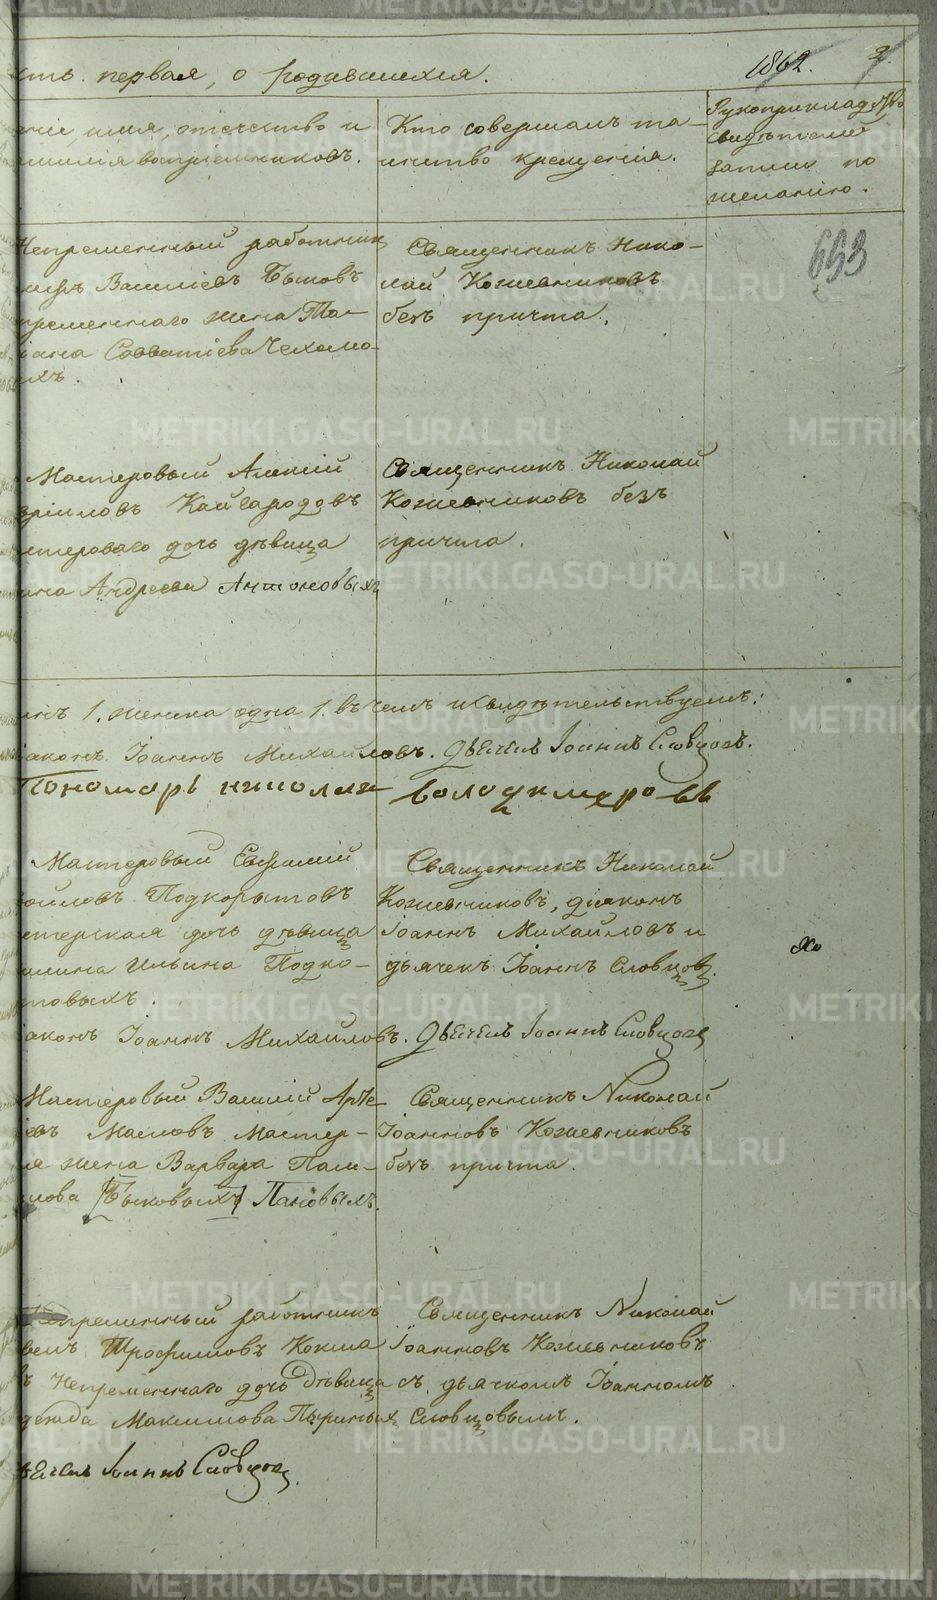 сть первая, о родившихся. 1862. 2.
имя, отчество и
воспріемниковъ.
Кто совершалъ та-
инство крещенія.
Рукоприкладство
свидѣтелей
записи по
желанію.
653
Непременный работник
Василіевъ Бытовъ
пременнаго жена Та-
іана Савватіева Чехомо-
ыхъ.
Священникъ Нико-
лай Кожевниковъ
безъ причта.
Мастеровый Алексій
вріиловъ Кайгородовъ
стероваго дочь дѣвица
Андреева Антоновыхъ
Священникъ Николай
Кожевниковъ безъ
причта.
1. женска одна 1. въ чемъ и свидѣтельствуемъ:
аконъ Іоаннъ Михайловъ. Дьячекъ Іоаннъ Словцовъ.
Пономарь николай володимеровъ
Мастеровый Евфимій
Подкорытовъ
стерская дочь дѣвица
Ильина Подко-
товыхъ.
Священникъ Николай
Кожевниковъ, діаконъ
Іоаннъ Михайловъ и
дьячекъ Іоаннъ Словцовъ.
аконъ Іоаннъ Михайловъ. Дьячекъ Іоаннъ Словцовъ
Мастеровый Василій Арте
евъ Масловъ мастер-
ая жена Варвара Пам-
лова [Быковыхъ] Пановыхъ.
Священникъ Николай
Іоанновъ Кожевниковъ
безъ причта.
пременный работникъ
Трофимовъ Кокша
въ непременнаго дочь дѣвица
дежда Максимова Пыриныхъ
Священникъ Николай
Іоанновъ Кожевниковъ
съ дьячкомъ Іоанномъ
Словцовымъ.
ьячекъ Іоаннъ Словцовъ.
METRIKI.GASO-URAL.RU